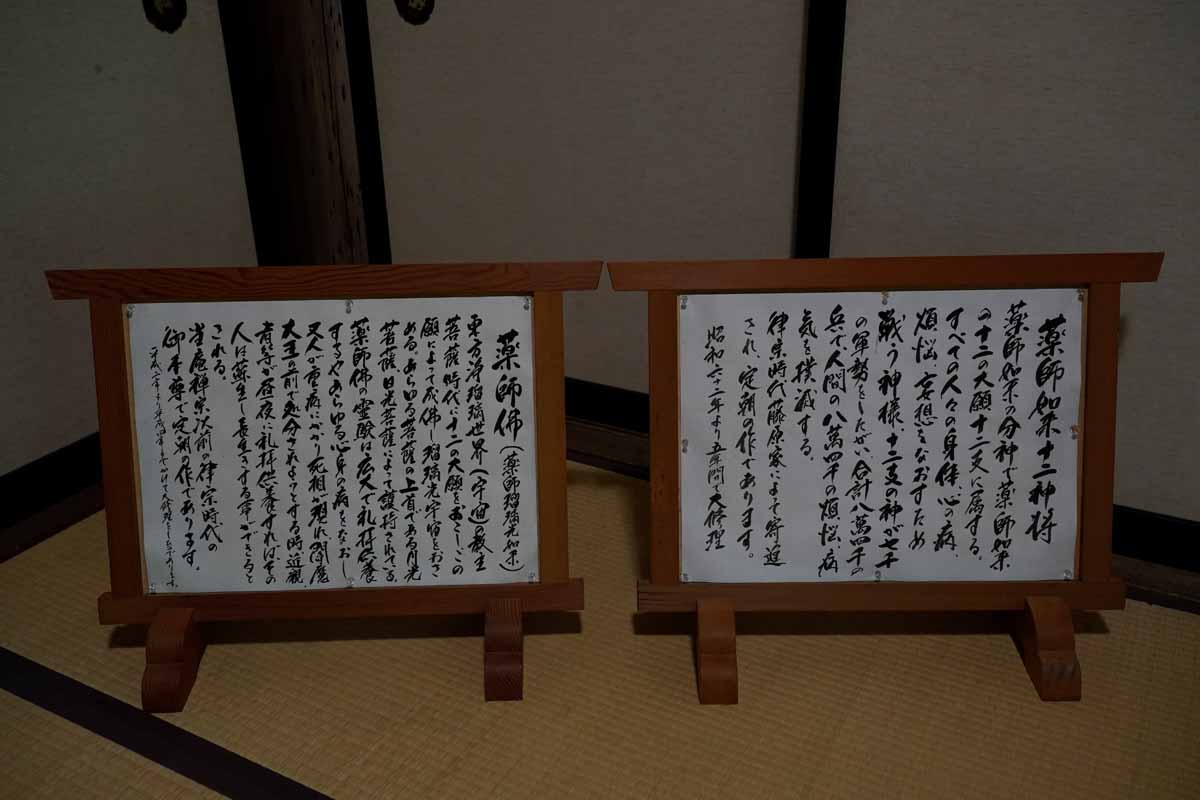 薬師如来十二神将
薬師如来の分神で薬師如来
の十二の大願十二支に属する。
すべての人々の身体、心の病、
煩悩、妄想をなおすため
戦う神様、十二支の神が七千
の軍勢をしたがい合計八萬四千の
兵で人間の八萬四千の煩悩、病
気を撲滅する。
律宗時代藤原家によって寄進
され、定朝の作であります。
昭和六十一年より五年間で大修理
薬師佛(薬師瑠璃光如来)
東方浄瑠璃世界(宇宙)の教主
菩薩時代に十二の大願をおこしこの
願によって成佛し瑠璃光宇宙をおさ
める。あらゆる菩薩の上首である月光
菩薩日光菩薩によって護持されてる。
薬師佛の霊験は広大で礼拝供養
するやあらゆる心身の病をなおし
又人が重病にかかり死相が現れ閻魔
大王の前で処分されようとする時近親
者等が昼夜に礼拝供養すればその
人は蘇生し長生きする事ができると
される。
当庵禅宗以前の律宗時代の
御本尊で定朝の作であります。